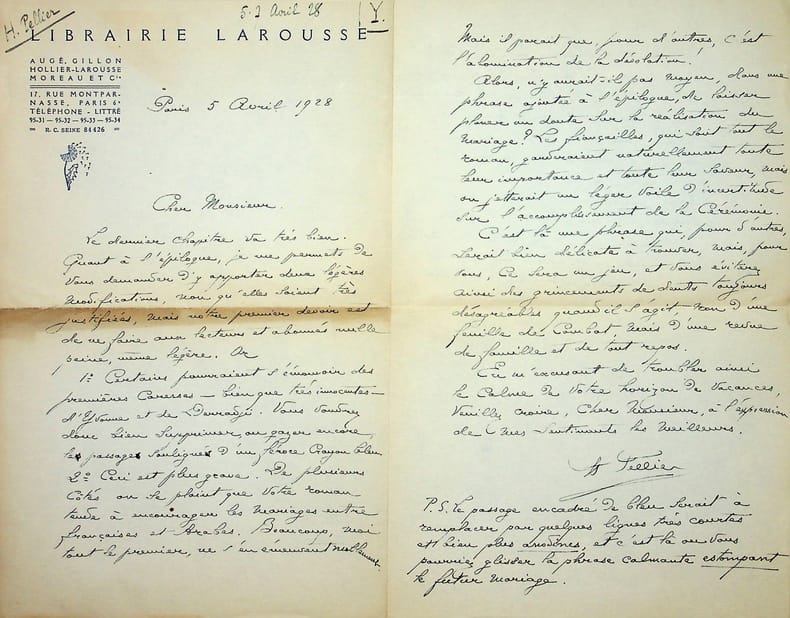 H. Pellier
5-3 Avril 28
Y.
LIBRAIRIE LAROUSSE
AUGÉ, GILLON
HOLLIER-LAROUSSE
MOREAU ET Cie
17, RUE MONTPAR-
NASSE, PARIS 6e
TÉLÉPHONE - LITTRÉ
95-31 — 95-32 — 95-33 — 95-34
R. C. SEINE 84426
Paris 5 Avril 1928
Cher Monsieur.
Le dernier chapitre va très bien.
Quant à l'épilogue, je me permets de
vous demander d'y apporter deux légères
modifications, non qu'elles soient très
justifiées, mais notre premier devoir est
de ne faire aux lecteurs et abonnés nulle
peine, même légère. Or
1º Certains pourraient s'émouvoir des
premières caresses — bien que très innocentes —
d'Yvonne et de . Vous voudrez
donc bien supprimer, ou gazer encore
les passages soulignés d'un féroce crayon bleu
2º Ceci est plus grave. De plusieurs
côtés on se plaint que votre roman
tende à encourager les mariages entre
françaises et Arabes. Beaucoup, moi
tout le premier, ne s'en émeuvent nullement.
Mais il parait que, pour d'autres, c'est
l'abomination de la désolation!
Alors, n'y aurait-il pas moyen, dans une
phrase ajoutée à l'épilogue, de laisser
planer un doute sur la réalisation du
mariage? Les fiançailles, qui sont tout le
roman, garderaient naturellement toute
leur importance et toute leur saveur, mais
on jetterait un léger voile d'incertitude
sur l'accomplissement de la Cérémonie.
C'est là une phrase qui, pour d'autres,
serait bien délicate à trouver, mais, pour
vous, ce sera un jeu, et vous éviterez
ainsi des grincements de dents toujours
désagréables quand il s'agit, non d'une
feuille de Combat mais d'une revue
de famille et de tout repos.
En m'excusant de troubler ainsi
le calme de votre horizon de vacances,
veuillez croire, Cher Monsieur, à l'expression
de mes sentiments les meilleurs.
H Pellier
P.S. Le passage encadré de bleu serait à
remplacer par quelques lignes très courtes
et bien plus anodines, et c'est là où vous
pourriez glisser la phrase calmante estompant
le futur mariage.